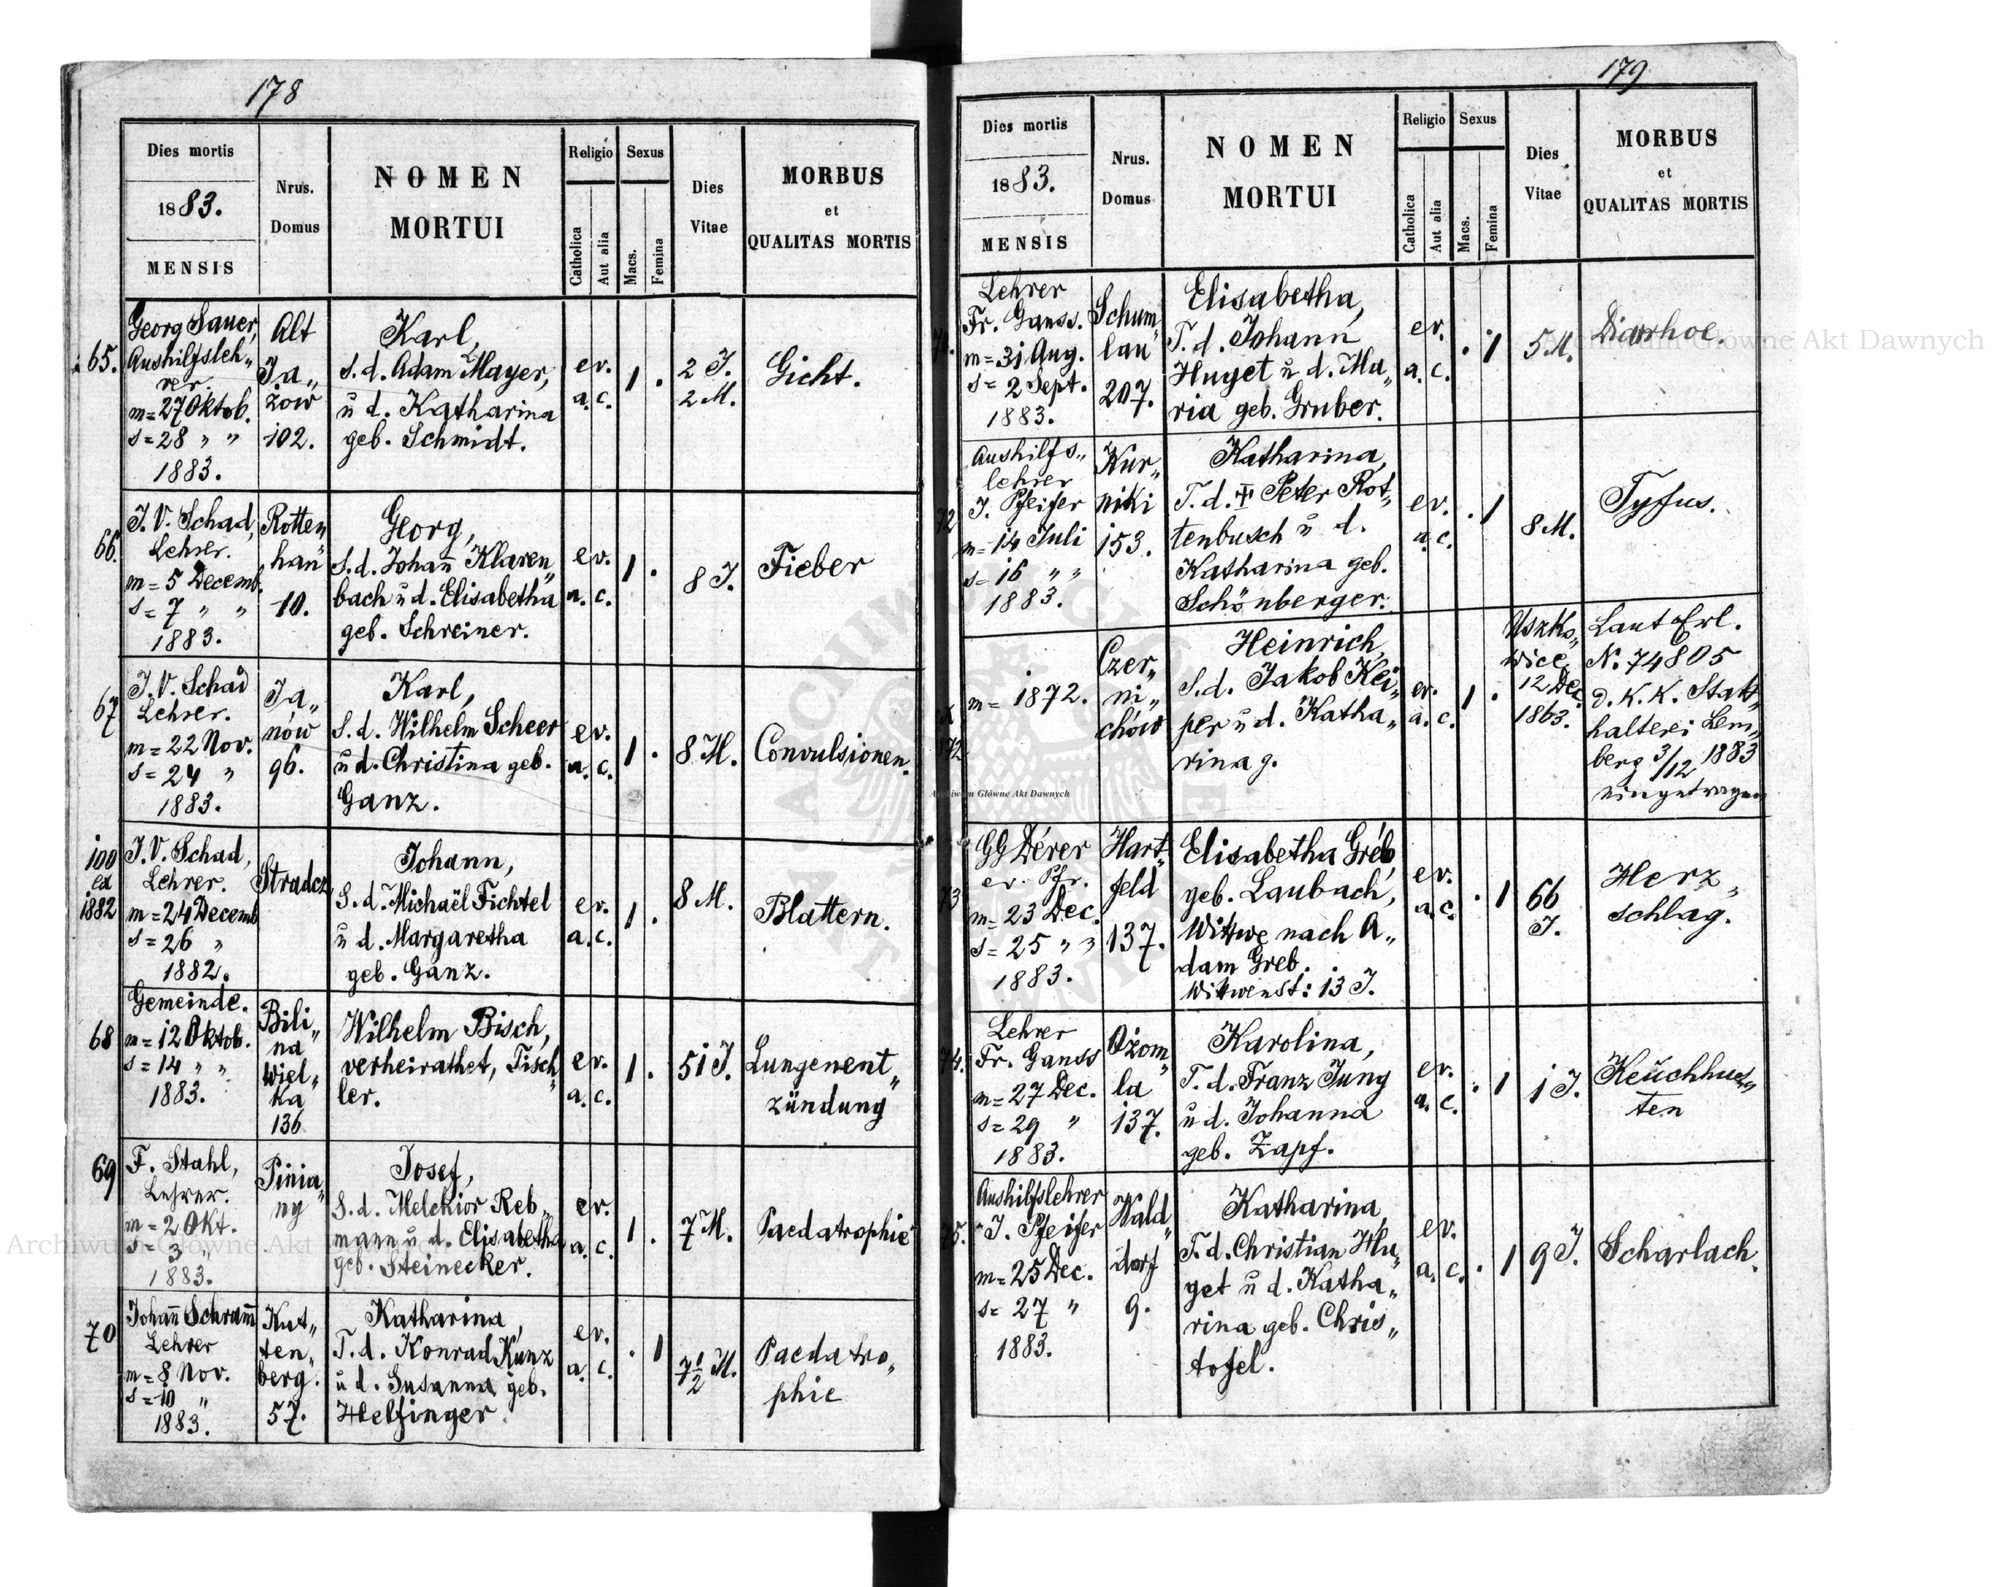 178
Dies mortis
1883.
MENSIS
Nrus.
Domus
NOMEN
MORTUI
Religio
Catholica
Aut alia
Sexus
Macs.
Femina
Dies
Vitae
MORBUS
et
QUALITAS MORTIS
65.
Georg Sauer,
Aushilfsleh„
rer.
m=27 Oktob.
s=28 „ „
1883.
Alt
Ja„
zow
102.
Karl,
S. d. Adam Mayer,
u d. Katharina
geb. Schmidt.
ev.
a. c.
1 .
2 J.
2 M.
Gicht.
66.
J. V. Schad,
Lehrer.
m= 5 Decemb.
s= 7 „ „
1883.
Rotten
han
10.
Georg,
S. d. Johann Klaren„
bach u d. Elisabetha
geb. Schreiner.
ev.
a. c.
1 .
8 J.
Fieber
67
J. V. Schad
Lehrer.
m= 22 Nov.
s= 24 „
1883.
Ja„
now
96.
Karl,
S. d. Wilhelm Scheer
u d. Christina geb.
Ganz.
ev.
a. c.
1 .
8 M.
Convulsionen.
100
ex
1882
J. V. Schad,
Lehrer.
m= 24 Decemb
s= 26 „
1882.
Stradcz
Johann,
S. d. Michaël Fichtel
u d. Margaretha
geb. Ganz.
ev.
a. c.
1 .
8 M.
Blattern.
68
Gemeinde.
m= 12 Oktob.
s= 14 „ „
1883.
Bili„
na
Wiel„
ka
136
Wilhelm Bisch,
verheirathet, Tisch„
ler.
ev.
a. c.
1 .
51 J.
Lungenent„
zündung
69
F. Stahl,
Lehrer.
m= 2 Okt.
s= 3 „
1883.
Pinia„
ny
Josef,
S. d. Melckior Reb„
mann u d. Elisabetha
geb. Steinecker.
ev.
a. c.
1 .
7 M.
Paedatrophie
70
Johann Schramm
Lehrer
m= 8 Nov.
s= 10 „
1883.
Kut„
ten„
berg.
57.
Katharina,
T. d. Konrad Kunz
u d. Susanna geb.
Helfinger.
ev.
a. c.
. 1
7 1/2 M.
Paedatro„
phie
179
Dies mortis
1883.
MENSIS
Nrus.
Domus
NOMEN
MORTUI
Religio
Catholica
Aut alia
Sexus
Macs.
Femina
Dies
Vitae
MORBUS
et
QUALITAS MORTIS
Lehrer
Fr. Ganss.
m= 31 Aug.
s= 2 Sept.
1883.
Schum„
lau
207.
Elisabetha,
T. d. Johann
Huget u d. Ma„
ria geb. Gruber.
ev.
a. c.
. 1
5 M.
Diarrhoe.
72
Aushilfs„
lehrer
J. Pfeifer
m= 14 Juli
s= 16 „ „
1883.
Kur„
niki
153.
Katharina,
T. d. Peter Rot„
tenbusch u d.
Katharina geb.
Schönberger.
ev.
a. c.
. 1
8 M.
Tyfus.
m= 1872.
Czer„
ni„
chów
Heinrich,
S. d. Jakob Kei„
per u d. Katha„
rina g.
ev.
a. c.
1 .
Uszko„
wice
12 Dec.
1863.
Laut Erl.
No 74805
d. K. K. Statt„
halterei Lem„
berg 3/12 1883
eingetragen
73
GG Dérer
ev. Pfr.
m= 23 Dec.
s= 25 „ „
1883.
Hart„
feld
137.
Elisabetha Greb
geb. Laubach,
Wittwe nach A„
dam Greb.
Witwenst: 13 J.
ev.
a. c.
. 1
66
J.
Herz„
schlag.
74.
Lehrer
Fr. Ganss
m= 27 Dec.
s= 29 „
1883.
Ożom„
la
137.
Karolina,
T. d. Franz Jung
u d. Johanna
geb. Zapf.
ev.
a. c.
. 1
1 J.
Keuchhus„
ten
75.
Aushilfslehrer
J. Pfeifer
m= 25 Dec.
s= 27 „
1883.
Wald„
dorf
9.
Katharina,
T. d. Christian Hu„
get u d. Katha„
rina geb. Chris„
tofel.
ev.
a. c.
. 1
9 J.
Scharlach.
Archiwum Główne Akt Dawnych
Archiwum Główne Akt Dawnych
Archiwum Główne Akt Dawnych